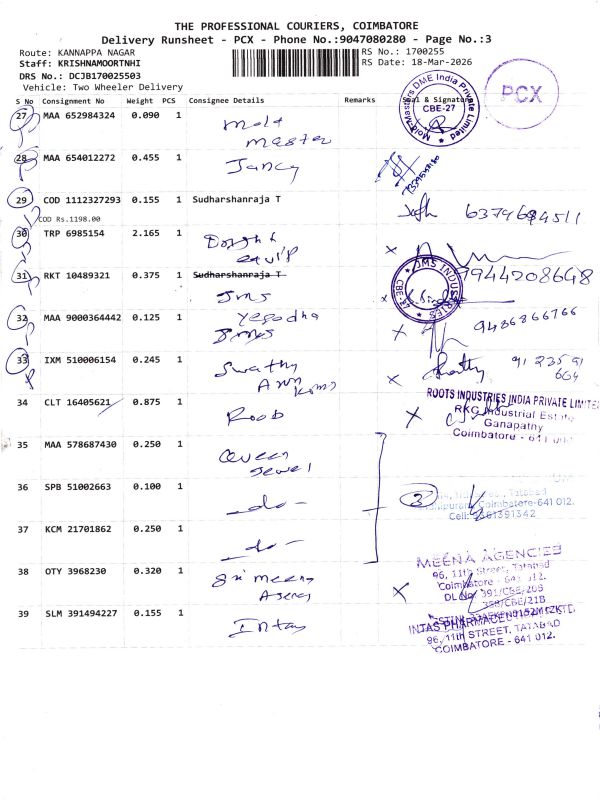 THE PROFESSIONAL COURIERS, COIMBATORE
Delivery Runsheet - PCX - Phone No.:9047080280 - Page No.:3
Route: KANNAPPA NAGAR
RS No.: 1700255
Staff: KRISHNAMOORTNHI
RS Date: 18-Mar-2026
DRS No.: DCJB170025503
Vehicle: Two Wheeler Delivery
S No Consignment No Weight PCS Consignee Details Remarks Seal & Signature
PCX
Mold-Masters DME India Private Limited
CBE-27
27 MAA 652984324 0.090 1 Mold
master
28 MAA 654012272 0.455 1 Jancy
29 COD 1112327293 0.155 1 Sudharshanraja T
COD Rs.1198.00
30 TRP 6985154 2.165 1
equip
944208648
31 RKT 10489321 0.375 1 Sudharshanraja T
Jms
JMS INDUSTRIES
32 MAA 9000364442 0.125 1 Yasodha
9486866766
33 IXM 510006154 0.245 1 Swathy
91 23591
664
34 CLT 16405621 0.875 1 Roob
ROOTS INDUSTRIES INDIA PRIVATE LIMITED
RKG Industrial Estate
Ganapathy
Coimbatore - 641
35 MAA 578687430 0.250 1 Queen
Jewel
36 SPB 51002663 0.100 1 -do-
3
Tatabad
641 012.
Cell:
37 KCM 21701862 0.250 1 -do-
38 OTY 3968230 0.320 1 Sri meena
Agency
MEENA AGENCIES
96, 11th Street, Tatabad
Coimbatore - 641 012.
DL No. 391/CBE/20B
388/CBE/21B
39 SLM 391494227 0.155 1 Intas
INTAS PHARMACEUTICALS LTD
96, 11th STREET, TATABAD
COIMBATORE - 641 012.